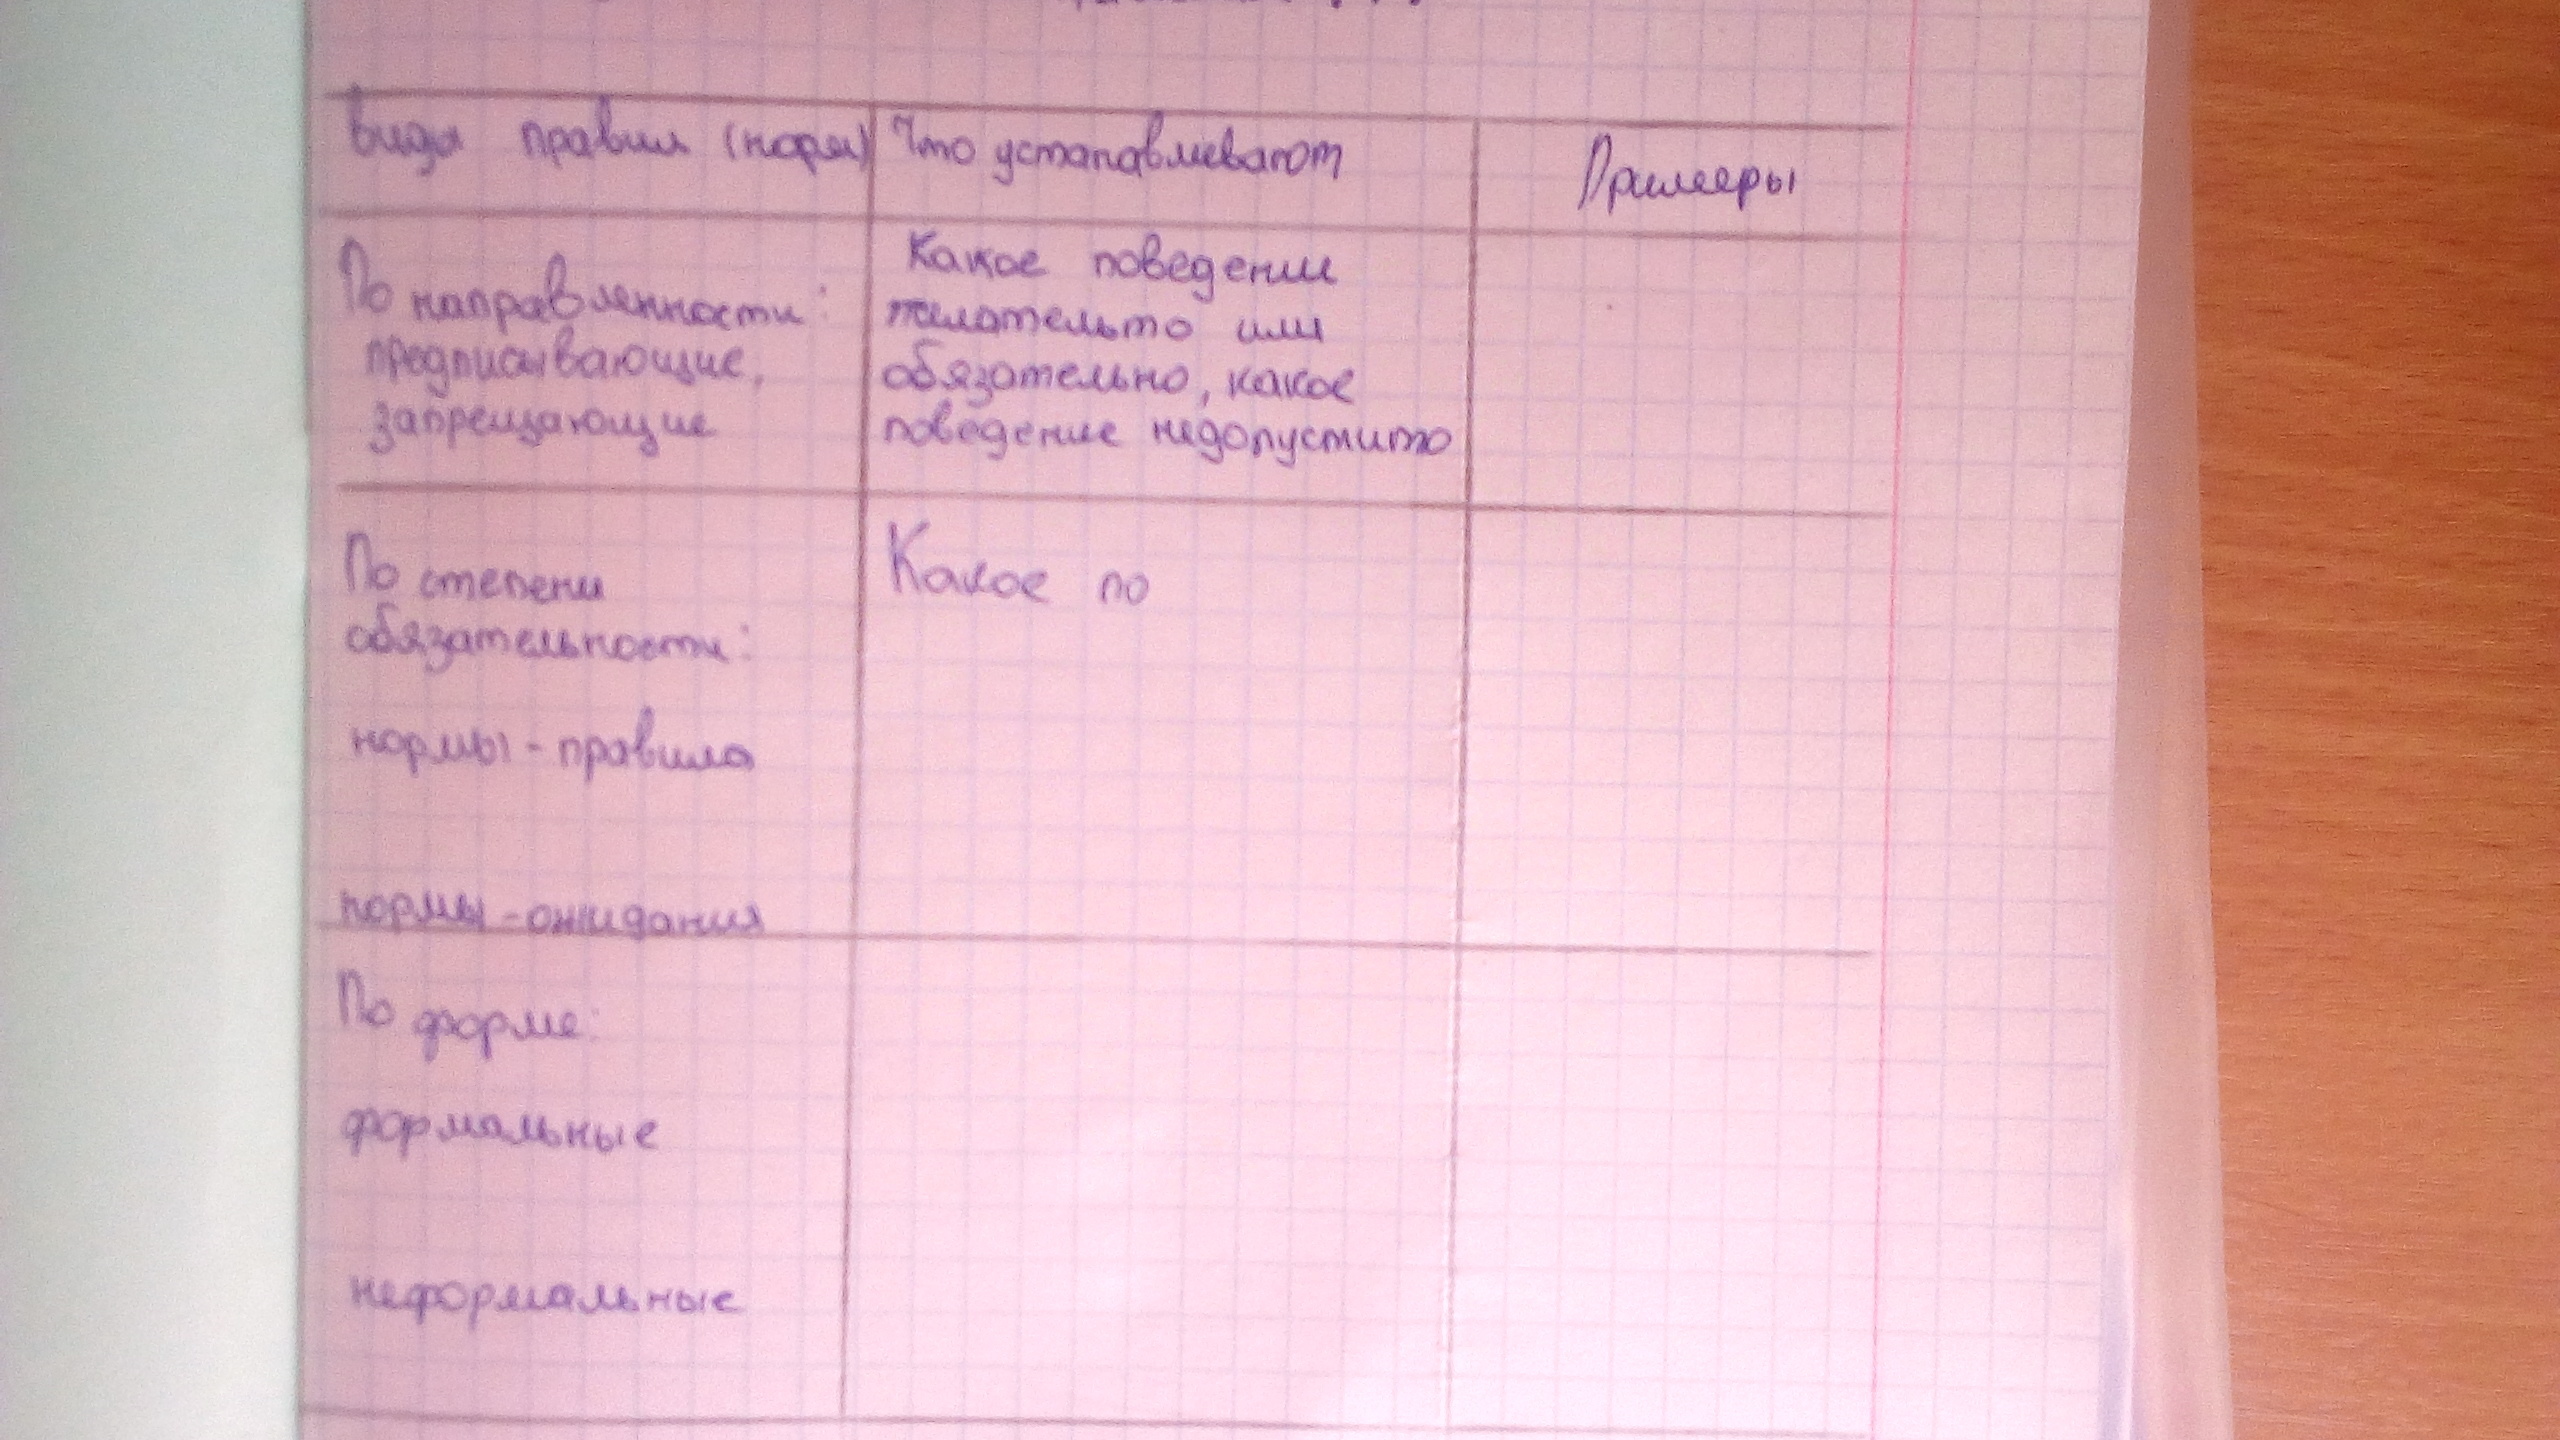 Виды правил (норм)
Что устанавливают
Примеры
По направленности:
предписывающие,
запрещающие
Какое поведении
желательто или
обязательно, какое
поведение недопустимо
По степени
обязательности:
нормы - правила
нормы - ожидания
Какое по
По форме:
формальные
неформальные